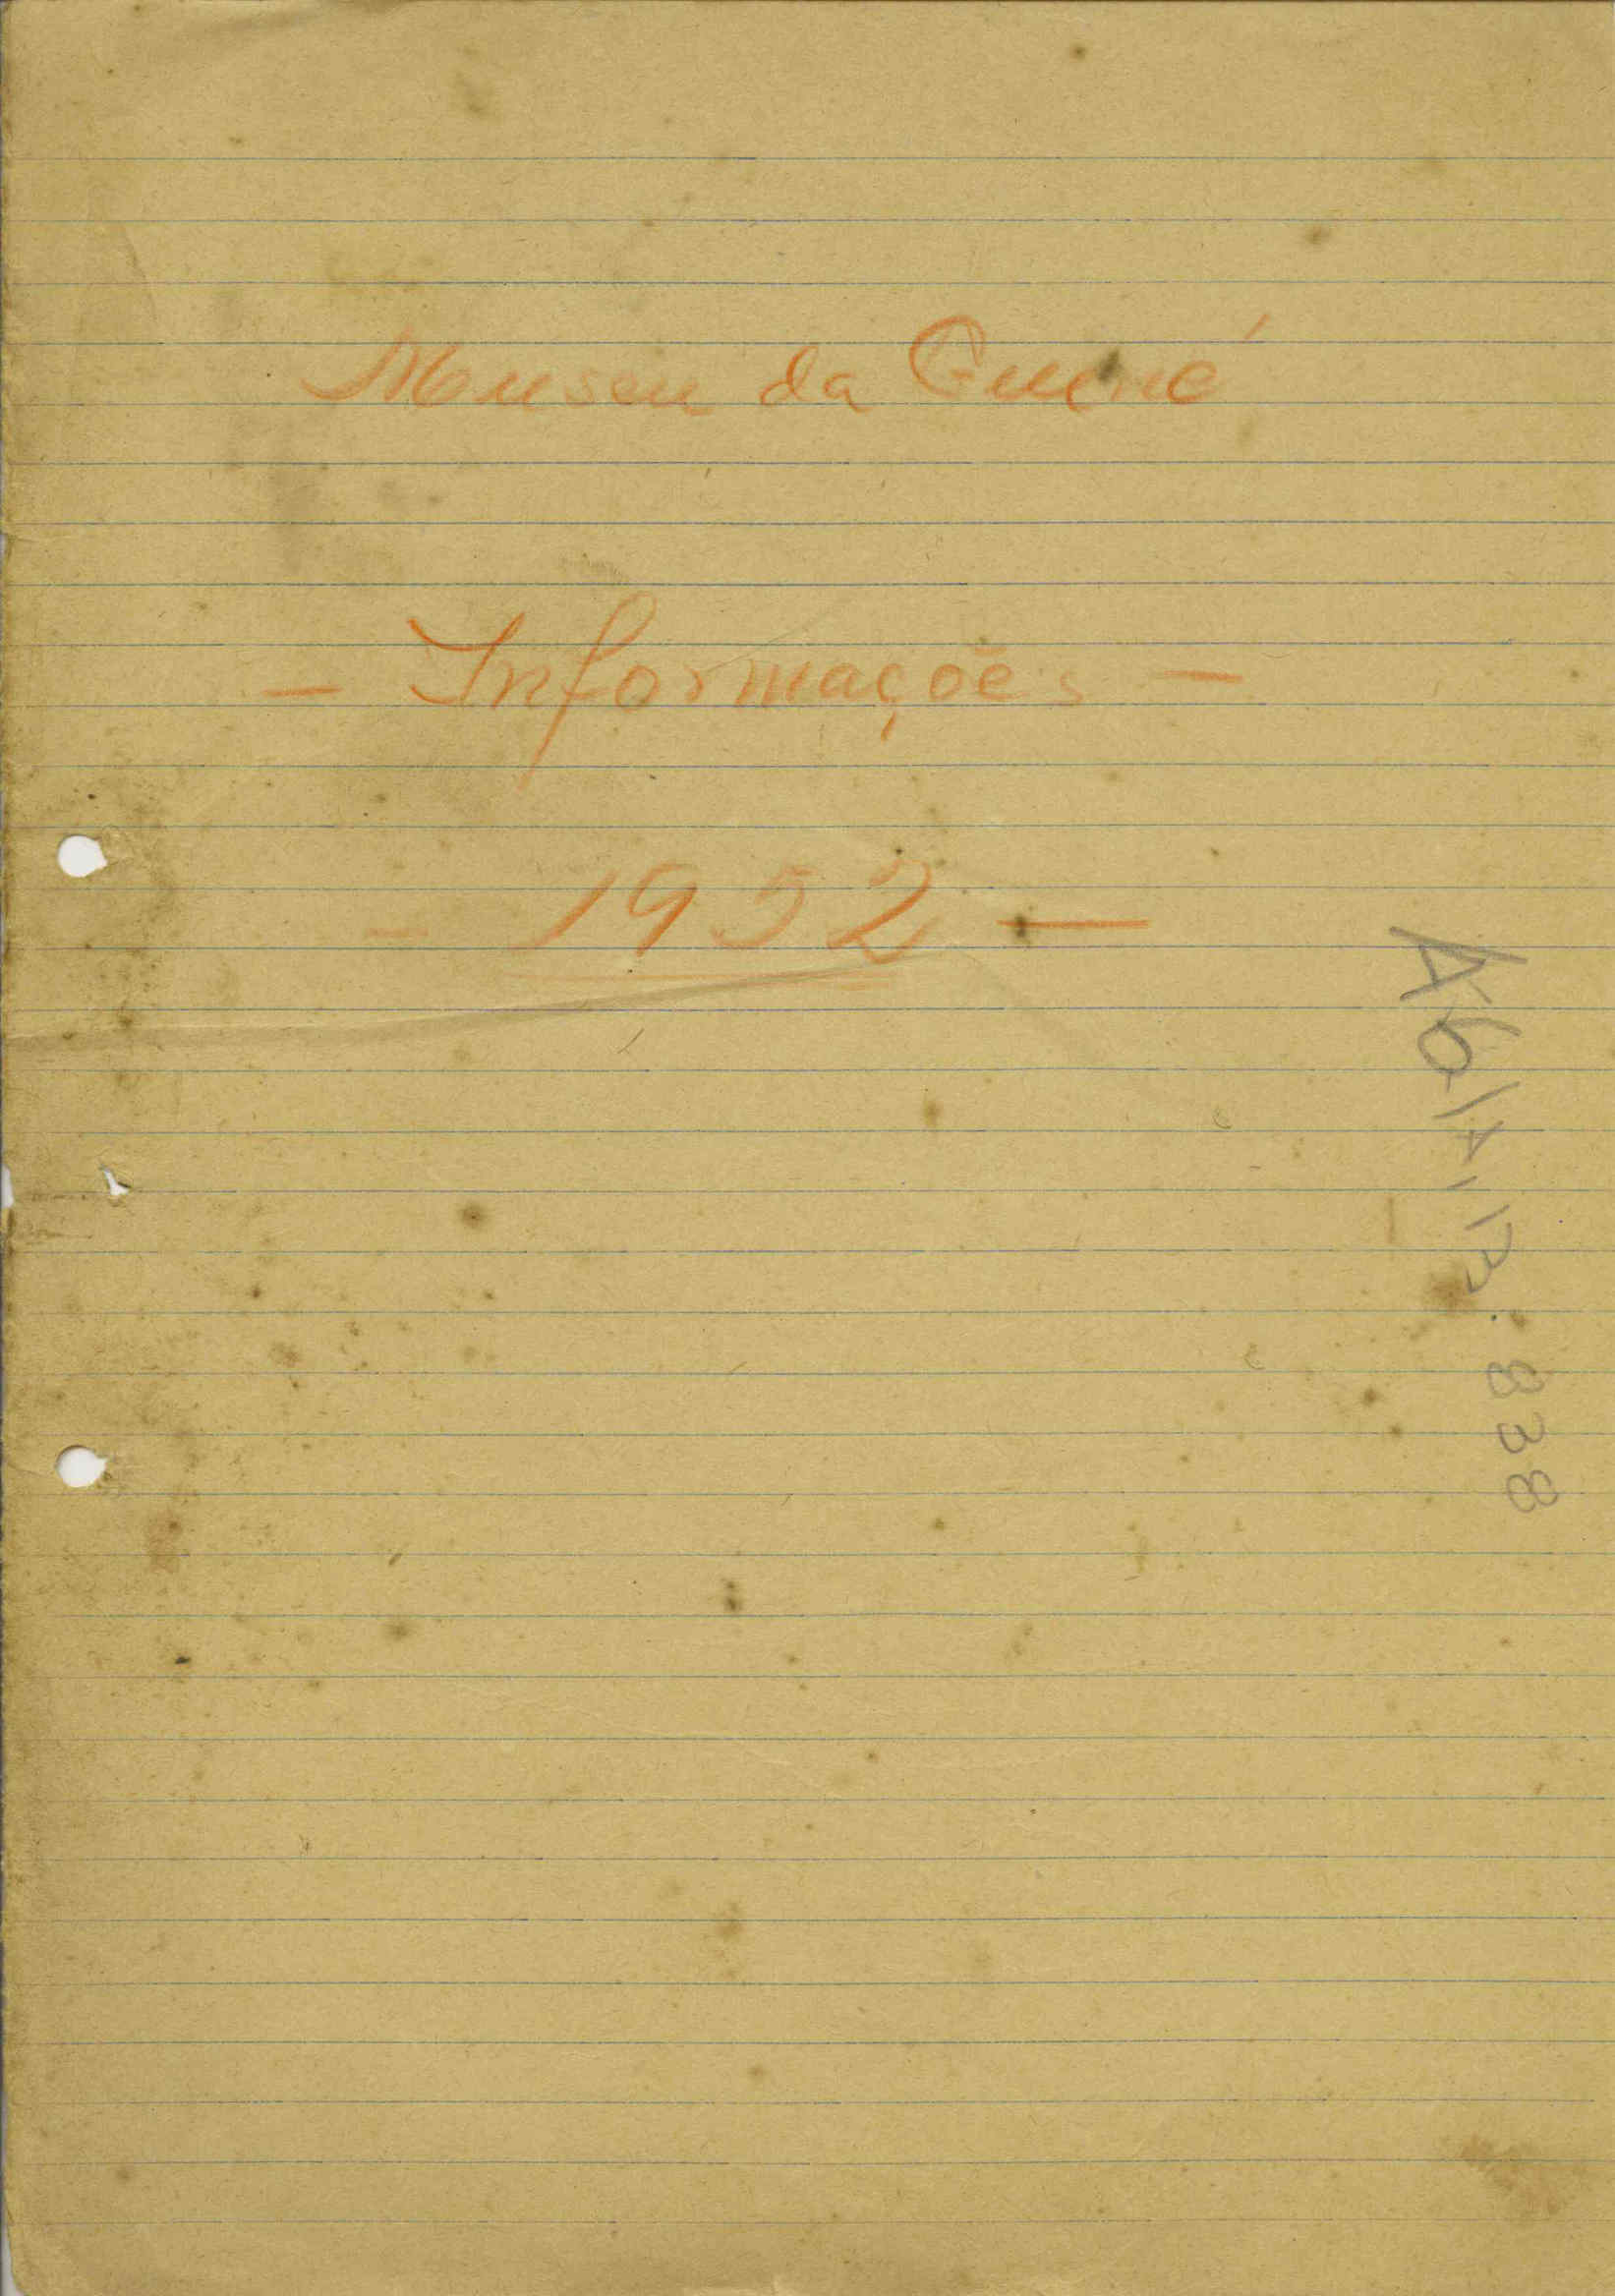 Museu da Guiné
- Informações -
- 1952 -
838